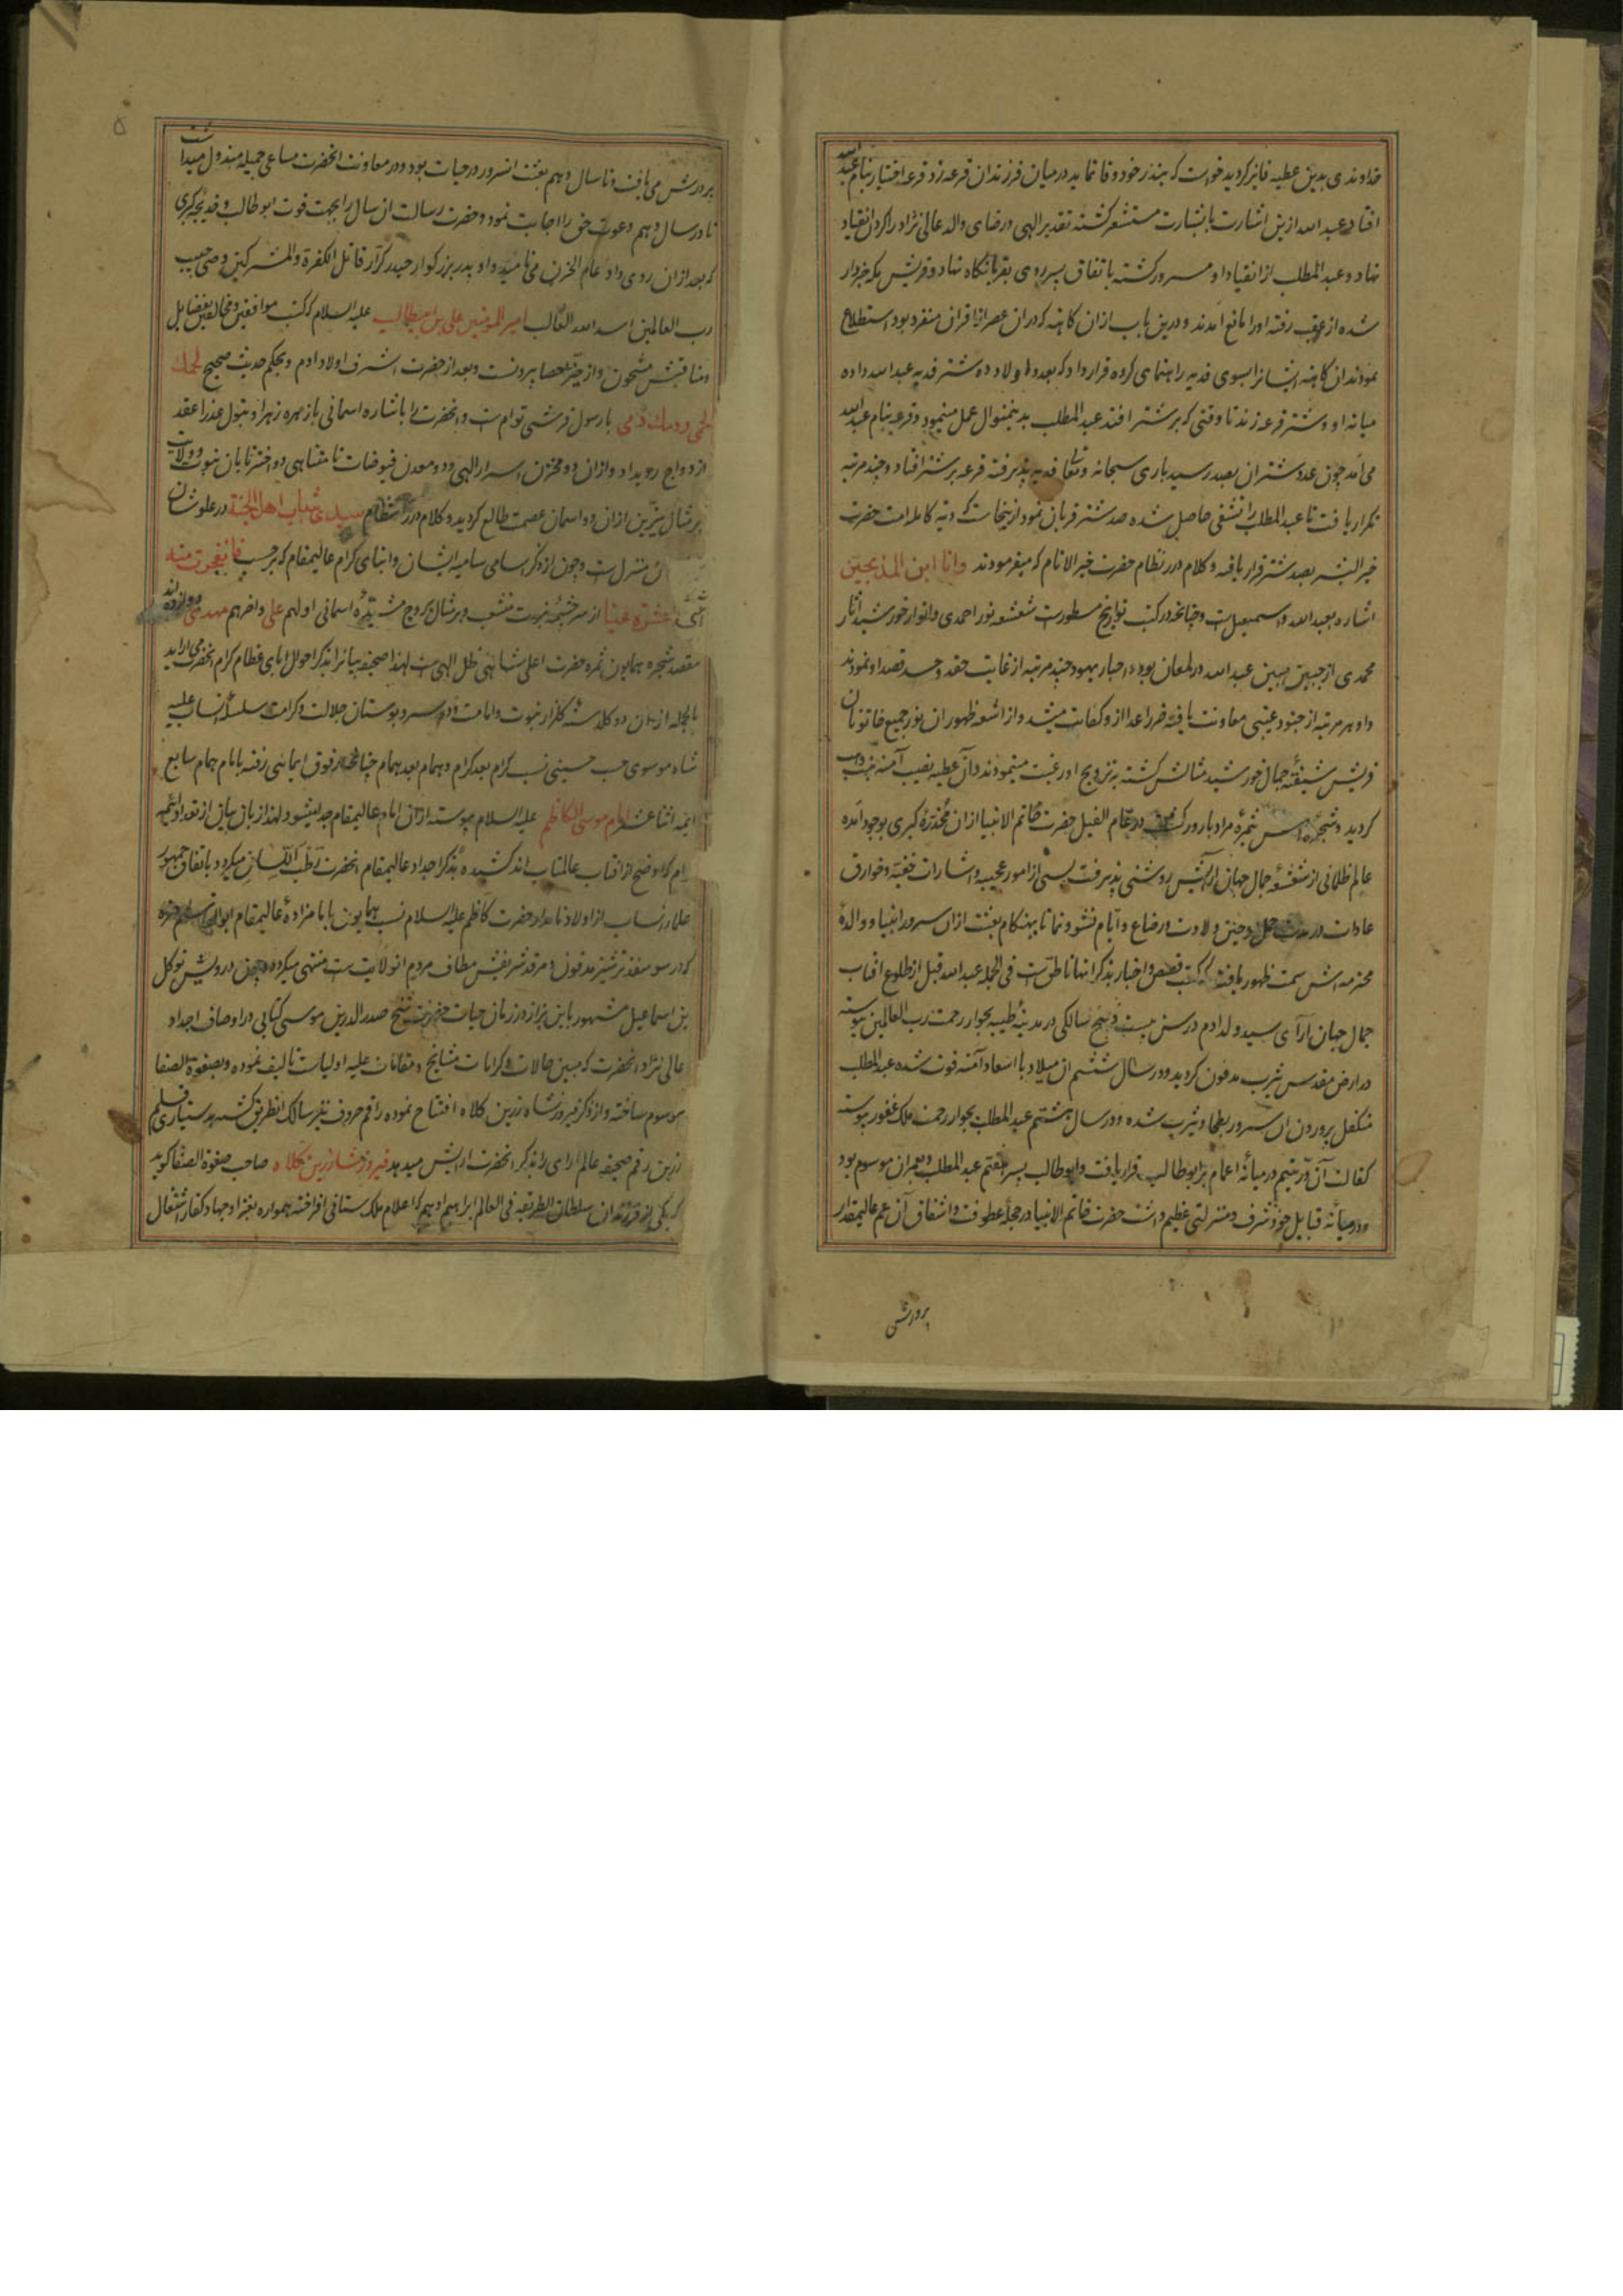 خداوندی بدین عطیه فایز کردید خواست که بنذر خود وفا نماید در میان فرزندان قرعه زد قرعه اختیار بنام عبد الله
افتاد عبد الله ازین اشارت با بشارت مستشعر کشته تقدیر الهی و رضای والد عالی نژاد را کردن انقیاد
نهاد و عبد المطلب از انقیاد او مسرور کشته باتفاق پسر روی بقربانکاه نهاد و قریش یک خبردار
شده از عقب رفته او را مانع آمدند و درین باب از ان کاهنه که در ان عصر از اقران منفرد بود استطلاع
نمودند ان کاهنه ایشانرا بسوی فدیه راهنمای کرده قرار داد که بعدد اولاد ده شتر فدیه عبد الله داده
میانه او و شتر قرعه زند تا وقتی که بر شتر افتد عبد المطلب بدینمنوال عمل مینمود و قرعه بنام عبد الله
می آمد چون عدد شتران بصد رسید باری سبحانه و تعالی فدیه پذیرفته قرعه بر شتر افتاد و چند مرتبه
تکرار یافت تا عبد المطلب را تشفی حاصل شده صد شتر قربان نمود از ینجاست که دیه کامله امت حضرت
خیر البشر بصد شتر قرار یافته و کلام درر نظام حضرت خیر الانام که میفرمودند وانا ابن الذبیحین
اشاره بعبد الله و اسمعیل است و چنانچه در کتب تواریخ مسطورست شعشعه نور احمدی و انوار خورشید آثار
محمدی از جبین مبین عبد الله در لمعان بود و احبار یهود چند مرتبه از غایت حقد و حسد قصد او نمودند
و او هر مرتبه از جنود غیبی معاونت یافته ضرر اعدا از و کفایت میشد و از اشعه ظهور ان نور جمیع خاتونان
قریش شیفته جمال خورشید مثالش کشته بتزویج او رغبت مینمودند و آن عطیه نصیب آمنه بنت وهب
کردید و شجره اش ثمره مراد بارور کشت در عام الفیل حضرت خاتم الانبیا از ان مخدره کبری بوجود آمده
عالم ظلمانی از شعشعه جمال جهان آرایش روشنی پذیرفت بسی از امور عجیبه و اشارات خفیه و خوارق
عادات در مدت حمل و حین ولادت و رضاع و ایام نشو و نما تا بهنکام بعثت از ان سرور انبیا و والده
محترمه اش سمت ظهور یافت که کتب قصص و اخبار بذکر انها ناطق است فی الجمله عبد الله قبل از طلوع افتاب
جمال جهان آرآی سید ولد ادم در سن بیست و پنج سالکی در مدینه طیبه بجوار رحمت رب العالمین پیوسته
در ارض مقدس یثرب مدفون کردید و در سال ششم از میلاد با اسعاد آمنه فوت شده عبد المطلب
متکفل پرورون ان سرور بطحا و یثرب شده و در سال هشتم عبد المطلب بجوار رحمت ملک غفور پیوست
کفالت آن در یتیم در میانه اعمام بر ابو طالب قرار یافت و ابو طالب پسر هفتم عبد المطلب و بعمران موسوم بود
و در میانه قبایل خود شرف و منزلتی عظیم داشت حضرت خاتم الانبیا در حجله عطوفت و اشفاق آن عم عالیمقدار
پرورش
۵
پرورش می یافت و تا سال دهم بعثت انسرور در حیات بود و در معاونت انحضرت مساعی جمیله مبذول میداشت
تا در سال دهم دعوت حق را اجابت نمود و حضرت رسالت ان سال را بجهت فوت ابو طالب و خدیجه کبری
که بعد از ان روی داد عام الحزن می نامید و او پدر بزرکوار حیدر کرار قاتل الکفرة والمشرکین وصی حبیب
رب العالمین اسد الله الغالب امیر المومنین علی بن ابیطالب علیه السلام که کتب موافقین و مخالفین بفضایل
و مناقبش مشحون و از حیز احصا بیرونست و بعد از حضرت اشرف اولاد ادم و بحکم حدیث صحیح لحمك
لحمی و دمك دمی با رسول قرشی توام است و انحضرت را باشاره اسمانی با زهره زهرا و بتول عذرا عقد
ازدواج رویداد و از ان دو مخزن اسرار الهی و دو معدن فیوضات نامتناهی دو اختر تابان نبوت و ولایت
بر مثال نیرین از ان دو اسمان عصمت طالع کردید و کلام درر انتظام سیدی شباب اهل الجنة در علو شان
منزل است و چون از ذکر اسامی سامیه ایشان و ابنای کرام عالیمقام که بر حسب فانفجرت منه
اثنی عشرة عینا از سرچشمه نبوت منشعب و بر مثال بروج مشیده اسمانی اولهم علی و اخرهم مهدی دوازده اند
مقصد شجره همایون ثمره حضرت اعلی شاهی ظل الهی است لهذا صحیفه بیانرا بذکر احوال ابای عظام کرام انحضرت می اراید
بالجمله از ان دو کلدسته کلزار نبوت و امامت و دو سرو بوستان جلالت و کرامت سلسله انساب علیه
شاه موسوی حسب حسینی نسب کرام بعد کرام و همام بعد همام چنانچه در فوق ایمائی رفته بامام همام سابع
ایمه اثنا عشر امام موسی الکاظم علیه السلام پیوسته از ان امام عالیمقام جدا میشود لهذا زبان بیان از تعداد ائمه
کرام که اوضح از افتاب عالمتاب اند کشیده بذکر اجداد عالیمقام انحضرت رطب اللسان میکردد باتفاق جمهور
علماء انساب از اولاد نامدار حضرت کاظم علیه السلام نسب همایون بامامزاده عالیمقام ابو القاسم حمزه
که در سوسفند ترشیز مدفون و مرقد شریفش مطاف مردم انولایت ست منتهی میکردد درویش توکل
بن اسماعیل مشهور بابن بزاز در زمان حیات حضرت شیخ صدر الدین موسی کتابی در اوصاف اجداد
عالی نژاد انحضرت که مبین حالات و کرامات مشایخ و مقامات علیه اولیاست تالیف نموده و بصفوة الصفا
موسوم ساخته و از ذکر فیروز شاه زرین کلاه افتتاح نموده راقم حروف نیز سالک انطریق کشته بدستیاری قلم
زرین رقم صحیفه عالم ارای را بذکر انحضرت ارایش میدهد فیروز شاه زرین کلاه صاحب صفوة الصفا کوید
که یکی از فرزندان سلطان الطریقه فی العالم ابراهیم ادهم که اعلام ملک ستانی افراخته همواره بغزا و جهاد کفار اشتغال